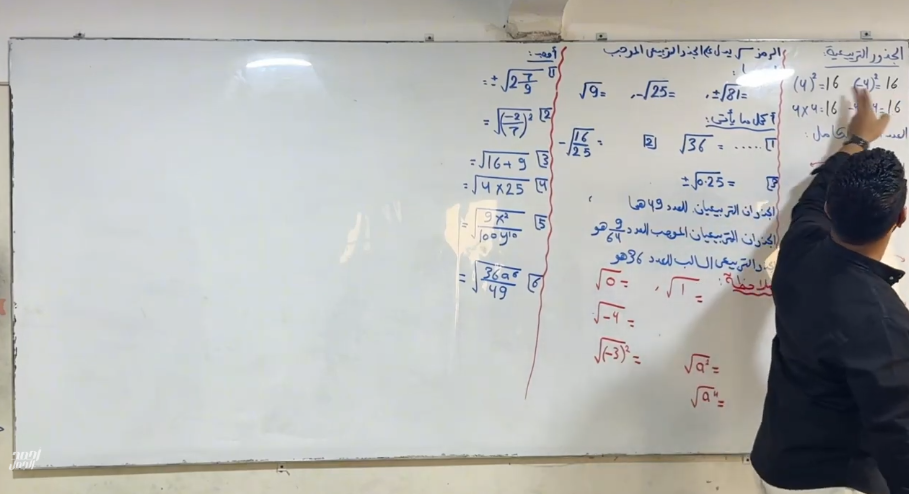 الجذور التربيعية
(4)² = 16 (-4)² = 16
4 x 4 = 16 = 16
الرمز √ يدل على الجذر التربيعي الموجب
√9 = , -√25 = , ±√81 =
أكمل ما يأتي :
1 √36 = ..... 2 -√16/25 =
3 ±√0.25 =
الجذران التربيعيان للعدد 49 هما
الجذران التربيعيان الموجب للعدد 9/64 هو
التربيعى السالب للعدد 36 هو
ملاحظة :
√0 = , √1 =
√-4 =
√(-3)² =
√a² =
√a⁴ =
أوجد :
1 ±√2 7/9 =
2 √(-2/7)² =
3 √16 + 9 =
4 √4 x 25 =
5 √9x²/100y¹⁰ =
6 √36a⁶/49 =